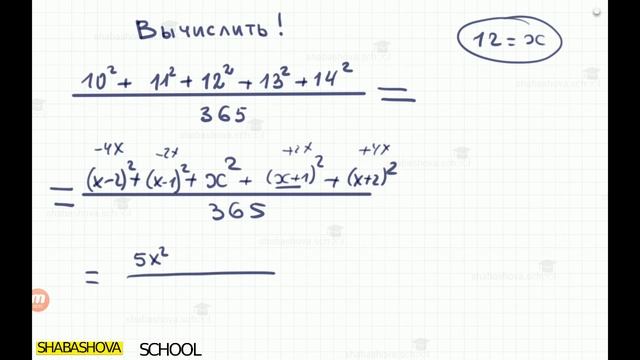 Вычислить!
12 = x
10² + 11² + 12² + 13² + 14² =
365
-4x -2x +2x +4x
= (x-2)² + (x-1)² + x² + (x+1)² + (x+2)²
365
= 5x²
SHABASHOVA SCHOOL